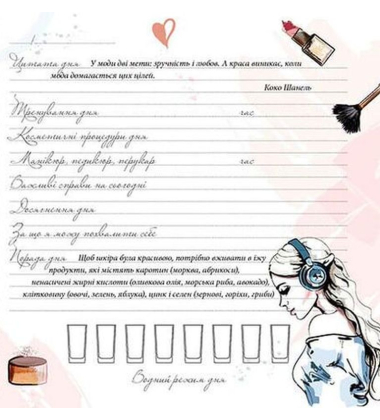 Цитата дня У моди дві мети: зручність і любов. А краса виникає, коли
мода домагається цих цілей.
Коко Шанель
Тренування дня час
Косметичні процедури дня
Манікюр, педикюр, перукар час
Важливі справи на сьогодні
Досягнення дня
За що я можу похвалити себе
Порада дня Щоб шкіра була красивою, потрібно вживати в їжу
продукти, які містять каротин (морква, абрикоси),
ненасичені жирні кислоти (оливкова олія, морська риба, авокадо),
клітковину (овочі, зелень, яблука), цинк і селен (зернові, горіхи, гриби)
Водний режим дня